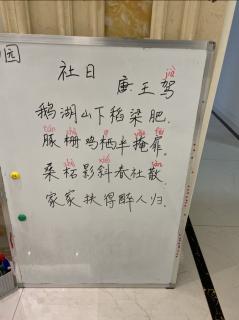 园
社日
jià
唐 王驾
鹅湖山下稻梁肥。
tún zhà qī yǎn fēi
豚栅鸡栖半掩扉。
zhè xié sàn
桑柘影斜春社散,
家家扶得醉人归.